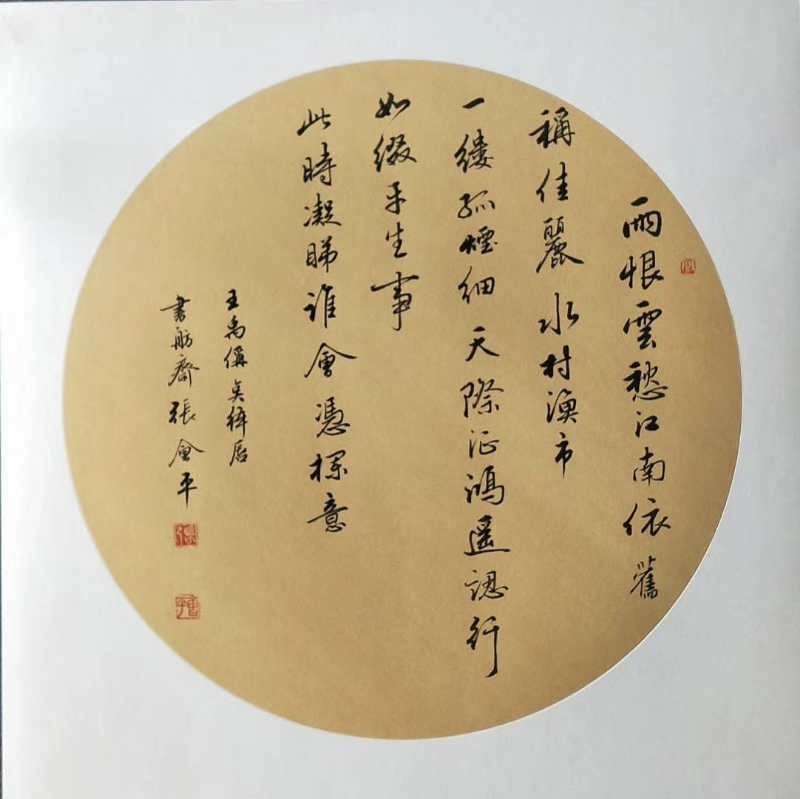 雨恨雲愁江南依舊
稱佳麗水村漁市
一縷孤煙細天際征鴻遥認行
如綴平生事
此時凝睇誰會憑欄意
王禹偁奌絳唇
書舫齋張會平